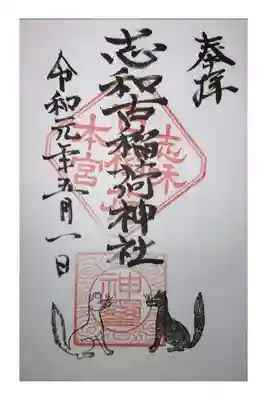 奉拝
志和古稲荷神社
令和元年五月一日
本宮
志和